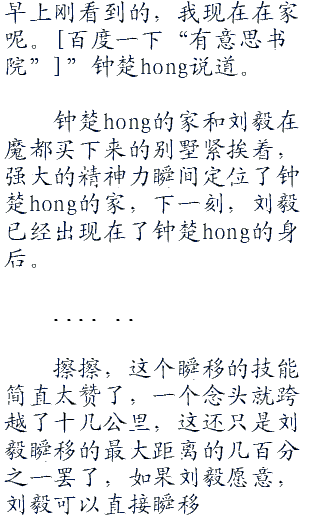 早上刚看到的，我现在在家
呢。[百度一下“有意思书
院”]”钟楚hong说道。
钟楚hong的家和刘毅在
魔都买下来的别墅紧挨着，
强大的精神力瞬间定位了钟
楚hong的家，下一刻，刘毅
已经出现在了钟楚hong的身
后。
.... ..
擦擦，这个瞬移的技能
简直太赞了，一个念头就跨
越了十几公里，这还只是刘
毅瞬移的最大距离的几百分
之一罢了，如果刘毅愿意，
刘毅可以直接瞬移